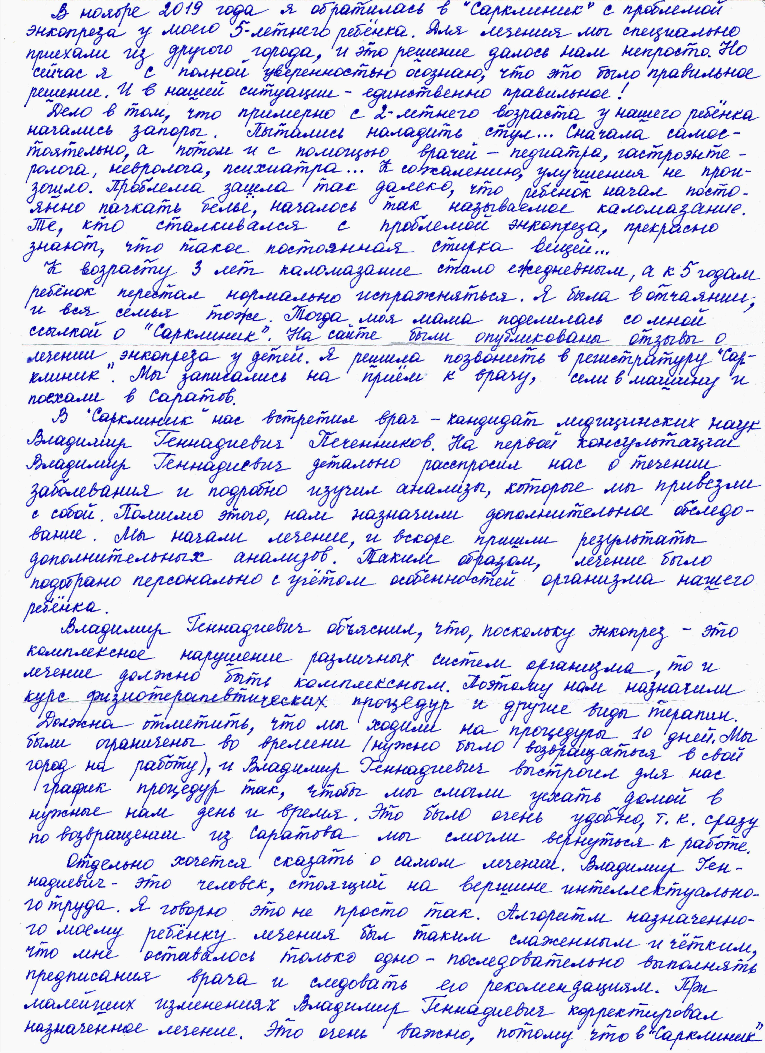 В ноябре 2019 года я обратилась в "Сарклиник" с проблемой
энкопреза у моего 5-летнего ребёнка. Для лечения мы специально
приехали из другого города, и это решение далось нам непросто. Но
сейчас я с полной уверенностью осознаю, что это было правильное
решение. И в нашей ситуации - единственно правильное!
Дело в том, что примерно с 2-летнего возраста у нашего ребёнка
начались запоры. Пытались наладить стул... Сначала самос-
тоятельно, а потом и с помощью врачей - педиатра, гастроэнте-
ролога, невролога, психиатра... К сожалению, улучшения не прои-
зошло. Проблема зашла так далеко, что ребёнок начал посто-
янно пачкать бельё, началось так называемое каломазание.
Те, кто сталкивался с проблемой энкопреза, прекрасно
знают, что такое постоянная стирка вещей...
К возрасту 3 лет каломазание стало ежедневным, а к 5 годам
ребёнок перестал нормально испражняться. Я была в отчаянии,
и вся семья тоже. Тогда моя мама поделилась со мной
ссылкой о "Сарклиник". На сайте были опубликованы отзывы о
лечении энкопреза у детей. Я решила позвонить в регистратуру "Сар-
клиник". Мы записались на приём к врачу, сели в машину и
поехали в Саратов.
В "Сарклиник" нас встретил врач - кандидат медицинских наук
Владимир Геннадиевич Печенников. На первой консультации
Владимир Геннадиевич детально расспросил нас о течении
заболевания и подробно изучил анализы, которые мы привезли
с собой. Помимо этого, нам назначили дополнительное обследо-
вание. Мы начали лечение, и вскоре пришли результаты
дополнительных анализов. Таким образом, лечение было
подобрано персонально с учётом особенностей организма нашего
ребёнка.
Владимир Геннадиевич объяснил, что, поскольку энкопрез - это
комплексное нарушение различных систем организма, то и
лечение должно быть комплексным. Поэтому нам назначили
курс физиотерапевтических процедур и другие виды терапии.
Должна отметить, что мы ходили на процедуры 10 дней. Мы
были ограничены во времени (нужно было возвращаться в свой
город на работу), и Владимир Геннадиевич выстроил для нас
график процедур так, чтобы мы смогли уехать домой в
нужные нам день и время. Это было очень удобно, т.к. сразу
по возвращении из Саратова мы смогли вернуться к работе.
Отдельно хочется сказать о самом лечении. Владимир Ген-
надиевич - это человек, стоящий на вершине интеллектуально-
го труда. Я говорю это не просто так. Алгоритм назначенно-
го моему ребёнку лечения был таким слаженным и чётким,
что мне оставалось только одно - последовательно выполнять
предписания врача и следовать его рекомендациям. При
малейших изменениях Владимир Геннадиевич корректировал
назначенное лечение. Это очень важно, потому что в "Сарклиник"